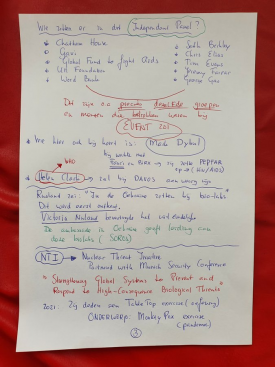 Wie zitten er in dit Independent Panel?
* Chatham House
* Gavi
* Global Fund to fight Aids
* UN Foundation
* World Bank
* Seth Berkley
* Chris Elias
* Tim Evans
* Jeremy Farrar
* George Gao
Dit zijn o.a. precies dezelfde groepen
en mensen die betrokken waren bij
EVENT 201
* Wie hier ook bij hoort is: Mark Dybul
hij werkte met
Fauci en Birx → zij zette PEPFAR
op → (HIV/AIDS)
WHO
* Helen Clark → zat bij DAVOS
Rusland zei: "In de Oekraine zitten bij bio-labs"
Dit werd eerst ontkend.
Victoria Nuland bevestigde het uiteindelijk
De ambassade in Oekraine geeft funding aan
deze biolabs (SOROS)
NTI → Nuclear Threat Initiative
Partnered with Munich Security Conference
"Strengthening Global Systems to Prevent and
Respond to High-Consequence Biological Threats"
2021: Zij deden een TableTop exercise (oefening)
ONDERWERP: Monkey Pox exercise
(pandemic)
3